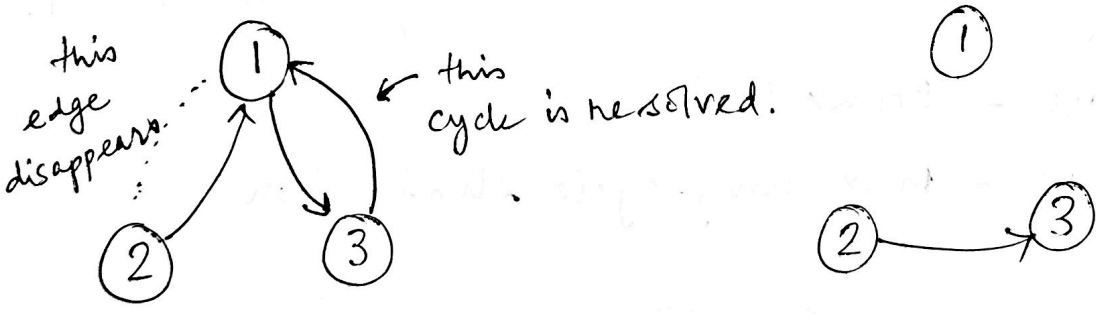 this
edge
disappears
this
cycle is resolved.
1
2
3
1
2
3